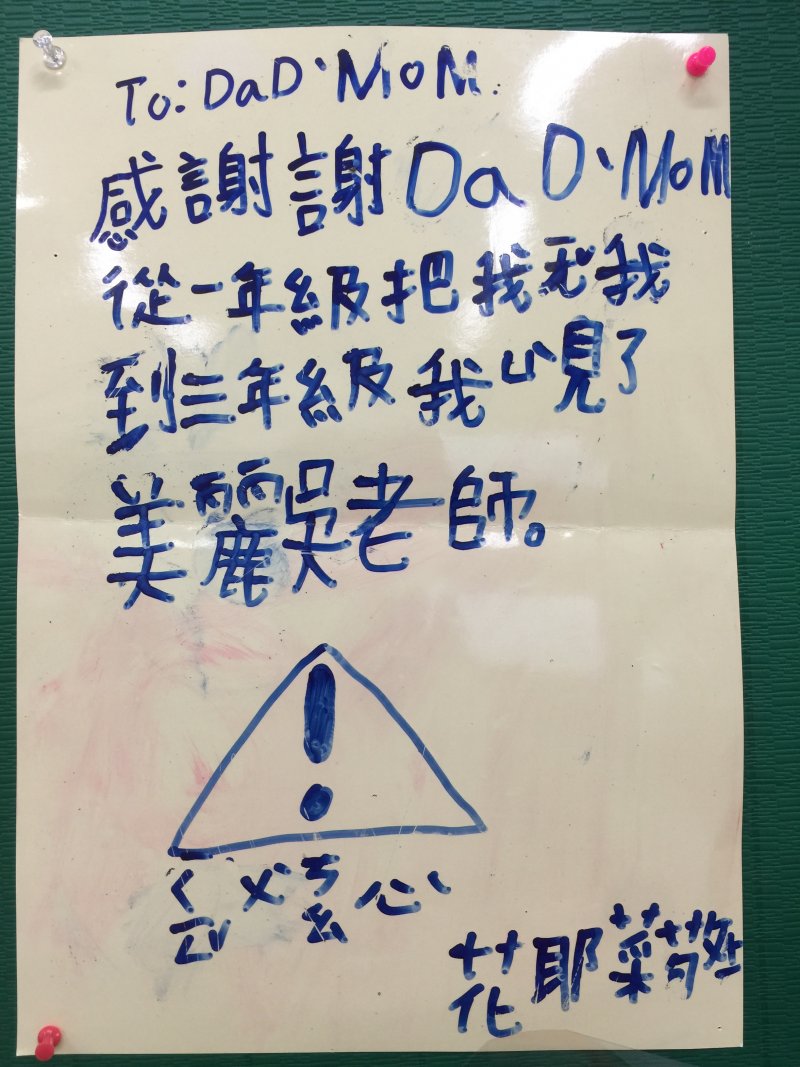 To: DaD、MoM.
感謝謝DaD、MoM
從一年級把我我
到三年級我ㄩˋ見了
美麗吳老師。
!
心
花耶菜敬